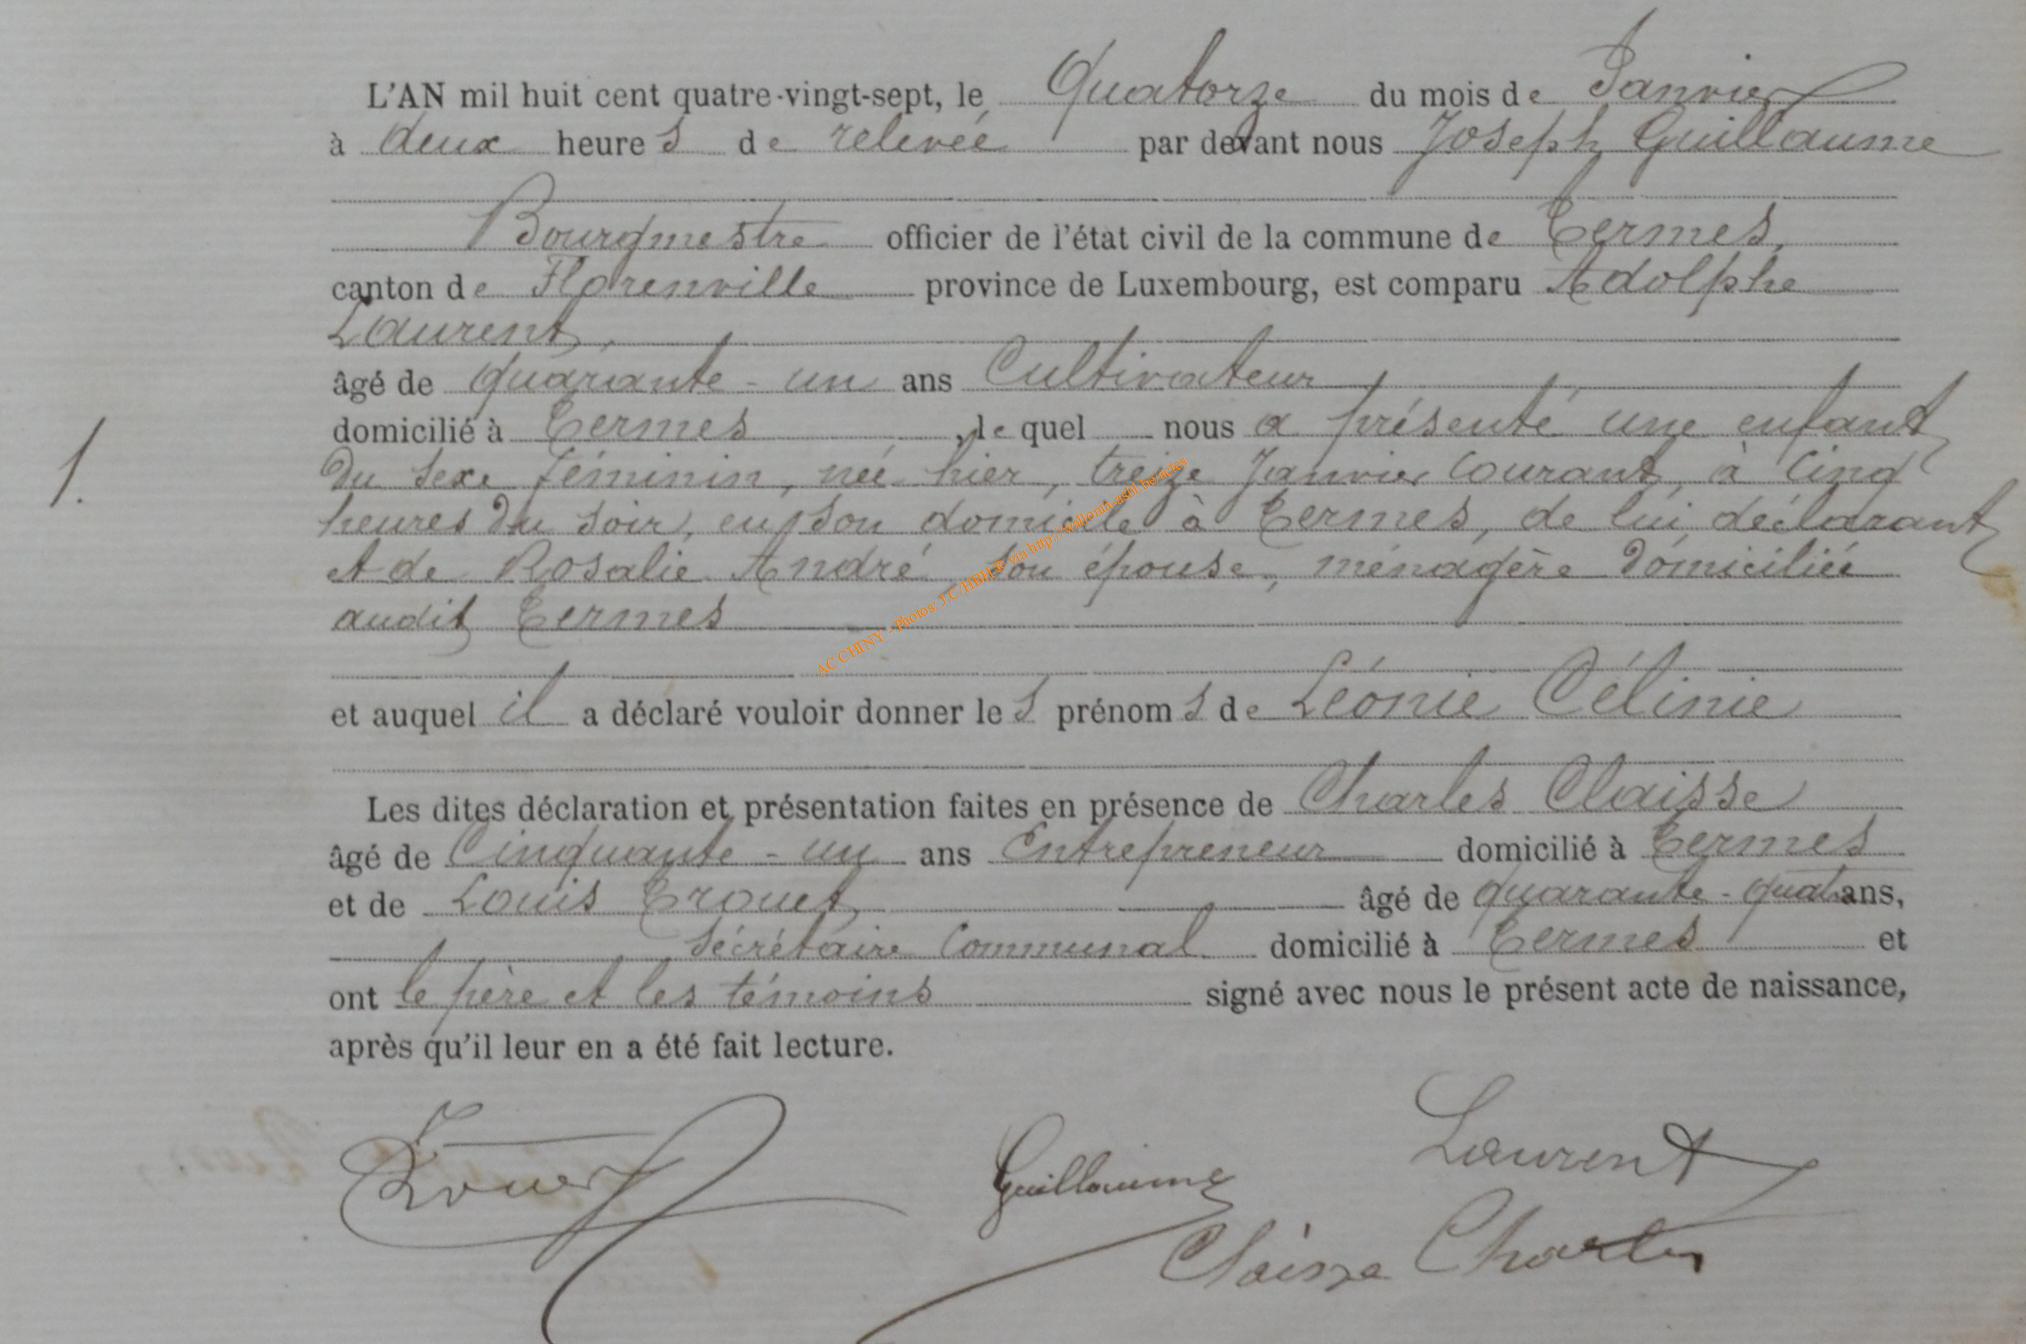 L'AN mil huit cent quatre-vingt-sept, le Quatorze du mois de Janvier
à deux heures de relevée par devant nous Joseph Guillaume
Bourgmestre officier de l'état civil de la commune de Termes,
canton de Florenville province de Luxembourg, est comparu Adolphe
Laurent,
âgé de quarante-un ans Cultivateur
domicilié à Termes, le quel nous a présenté une enfant
du sexe féminin, née hier, treize Janvier courant, à cinq
1.
heures du soir, en son domicile à Termes, de lui déclarant
et de Rosalie André, son épouse, ménagère domiciliée
audit Termes
ACCHINY - Photos: via http://
et auquel il a déclaré vouloir donner les prénoms de Léonie Célinie
Les dites déclaration et présentation faites en présence de Charles Claisse
âgé de Cinquante-un ans Entrepreneur domicilié à Termes
et de Louis Trouet âgé de quarante-quatre ans,
Sécrétaire Communal domicilié à Termes et
ont le père et les témoins signé avec nous le présent acte de naissance,
après qu'il leur en a été fait lecture.
Laurent
Trouet Guillaume
Claisse Charles